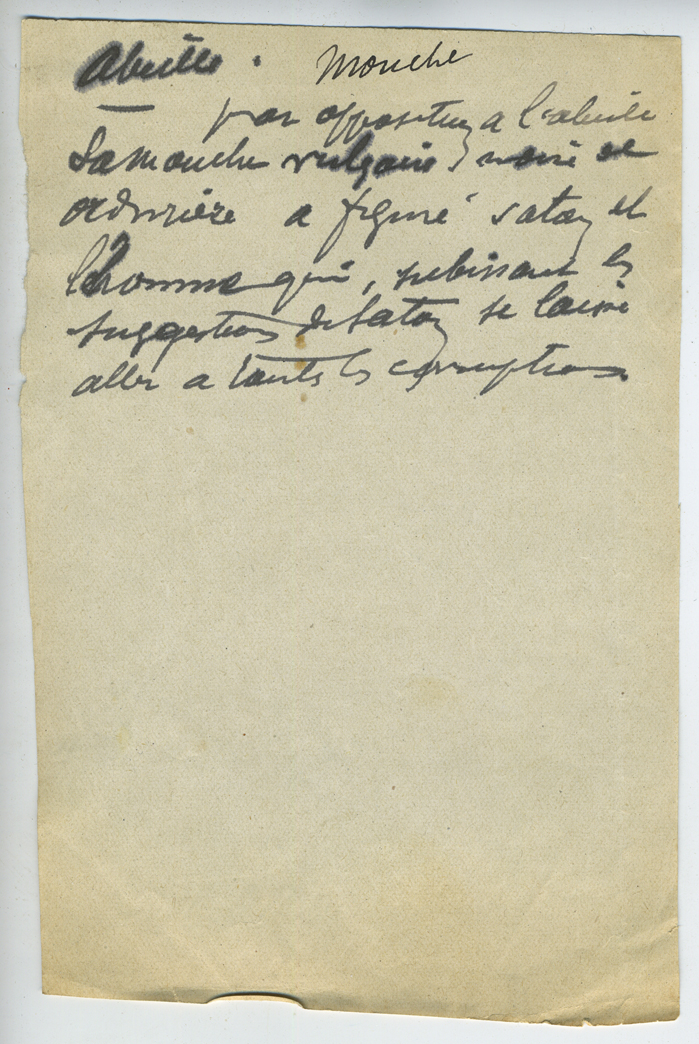 Abeille. Mouche
par opposition a l'abeille
la mouche vulgaire, noire et
ordurière a figuré satan et
l'homme qui, subissant les
suggestions de Satan se laisse
aller a toutes les corruptions.